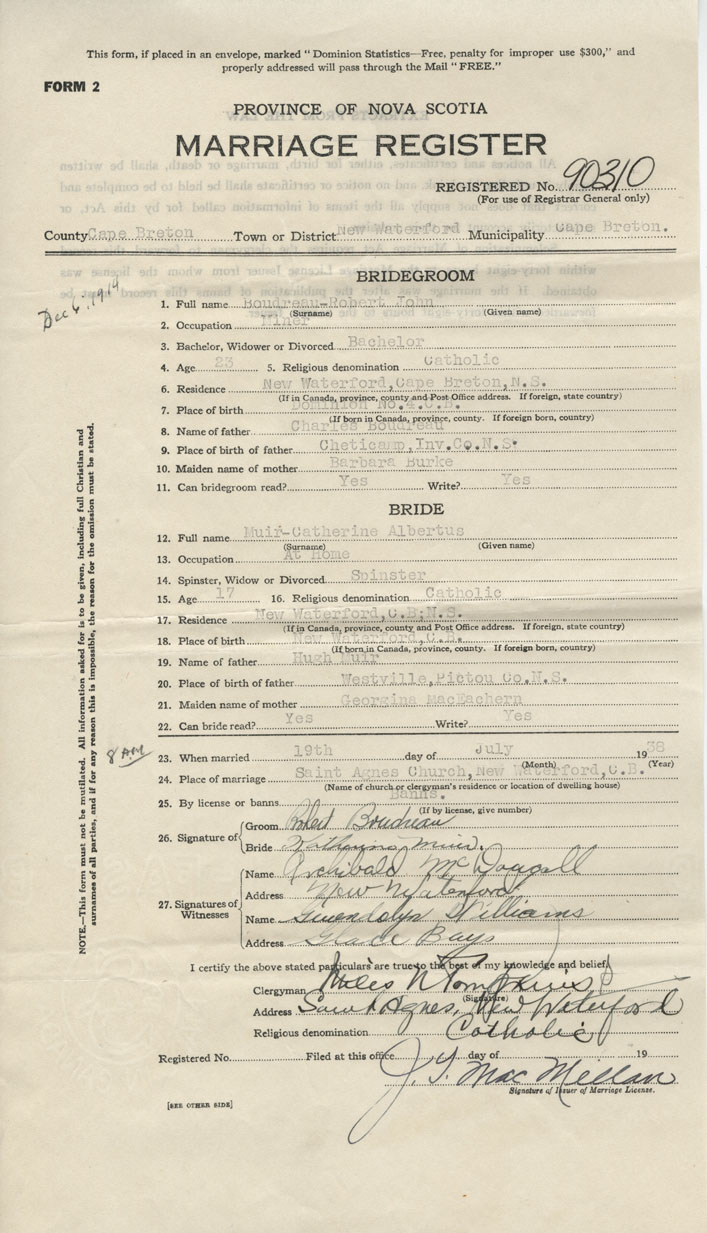 This form, if placed in an envelope, marked "Dominion Statistics—Free, penalty for improper use $300," and
properly addressed will pass through the Mail "FREE."
FORM 2
PROVINCE OF NOVA SCOTIA
MARRIAGE REGISTER
REGISTERED No. 90310
(For use of Registrar General only)
County Cape Breton Town or District New Waterford Municipality Cape Breton.
BRIDEGROOM
Dec 6, 1914
1. Full name Boudreau-Robert John
(Surname) (Given name)
2. Occupation Miner
3. Bachelor, Widower or Divorced Bachelor
4. Age 23 5. Religious denomination Catholic
6. Residence New Waterford,Cape Breton,N.S.
(If in Canada, province, county and Post Office address. If foreign, state country)
7. Place of birth Dominion No.4,C.B.
(If born in Canada, province, county. If foreign born, country)
8. Name of father Charles Boudreau
9. Place of birth of father Cheticamp,Inv.Co.N.S.
10. Maiden name of mother Barbara Burke
11. Can bridegroom read? Yes Write? Yes
BRIDE
12. Full name Muir-Catherine Albertus
(Surname) (Given name)
13. Occupation At Home
14. Spinster, Widow or Divorced Spinster
15. Age 17 16. Religious denomination Catholic
17. Residence New Waterford,C.B.N.S.
(If in Canada, province, county and Post Office address. If foreign, state country)
18. Place of birth New Waterford,C.B.
(If born in Canada, province, county. If foreign born, country)
19. Name of father Hugh Muir
20. Place of birth of father Westville,Pictou Co.N.S.
21. Maiden name of mother Georgina MacEachern
22. Can bride read? Yes Write? Yes
8 AM
23. When married 19th day of July 1938
(Month) (Year)
24. Place of marriage Saint Agnes Church,New Waterford,C.B.
(Name of church or clergyman's residence or location of dwelling house)
25. By license or banns Banns.
(If by license, give number)
26. Signature of
Groom Robert Boudreau
Bride Muir.
27. Signatures of Witnesses
Name Archibald McDougall
Address New Waterford
Name Gwendolyn Williams
Address Glace Bay
I certify the above stated particulars are true to the best of my knowledge and belief,
Clergyman Miles N Tompkins
(Signature)
Address Saint Agnes, New Waterford
Religious denomination Catholic
Registered No. Filed at this office day of 19
J. Y. MacMillan
Signature of Issuer of Marriage License.
[SEE OTHER SIDE]
NOTE.—This form must not be mutilated. All information asked for is to be given, including full Christian and
surnames of all parties, and if for any reason this is impossible, the reason for the omission must be stated.